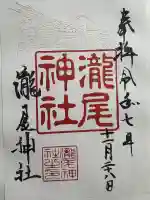 奉拝 令和七年
十二月二十八日
瀧尾
神社
瀧尾神社